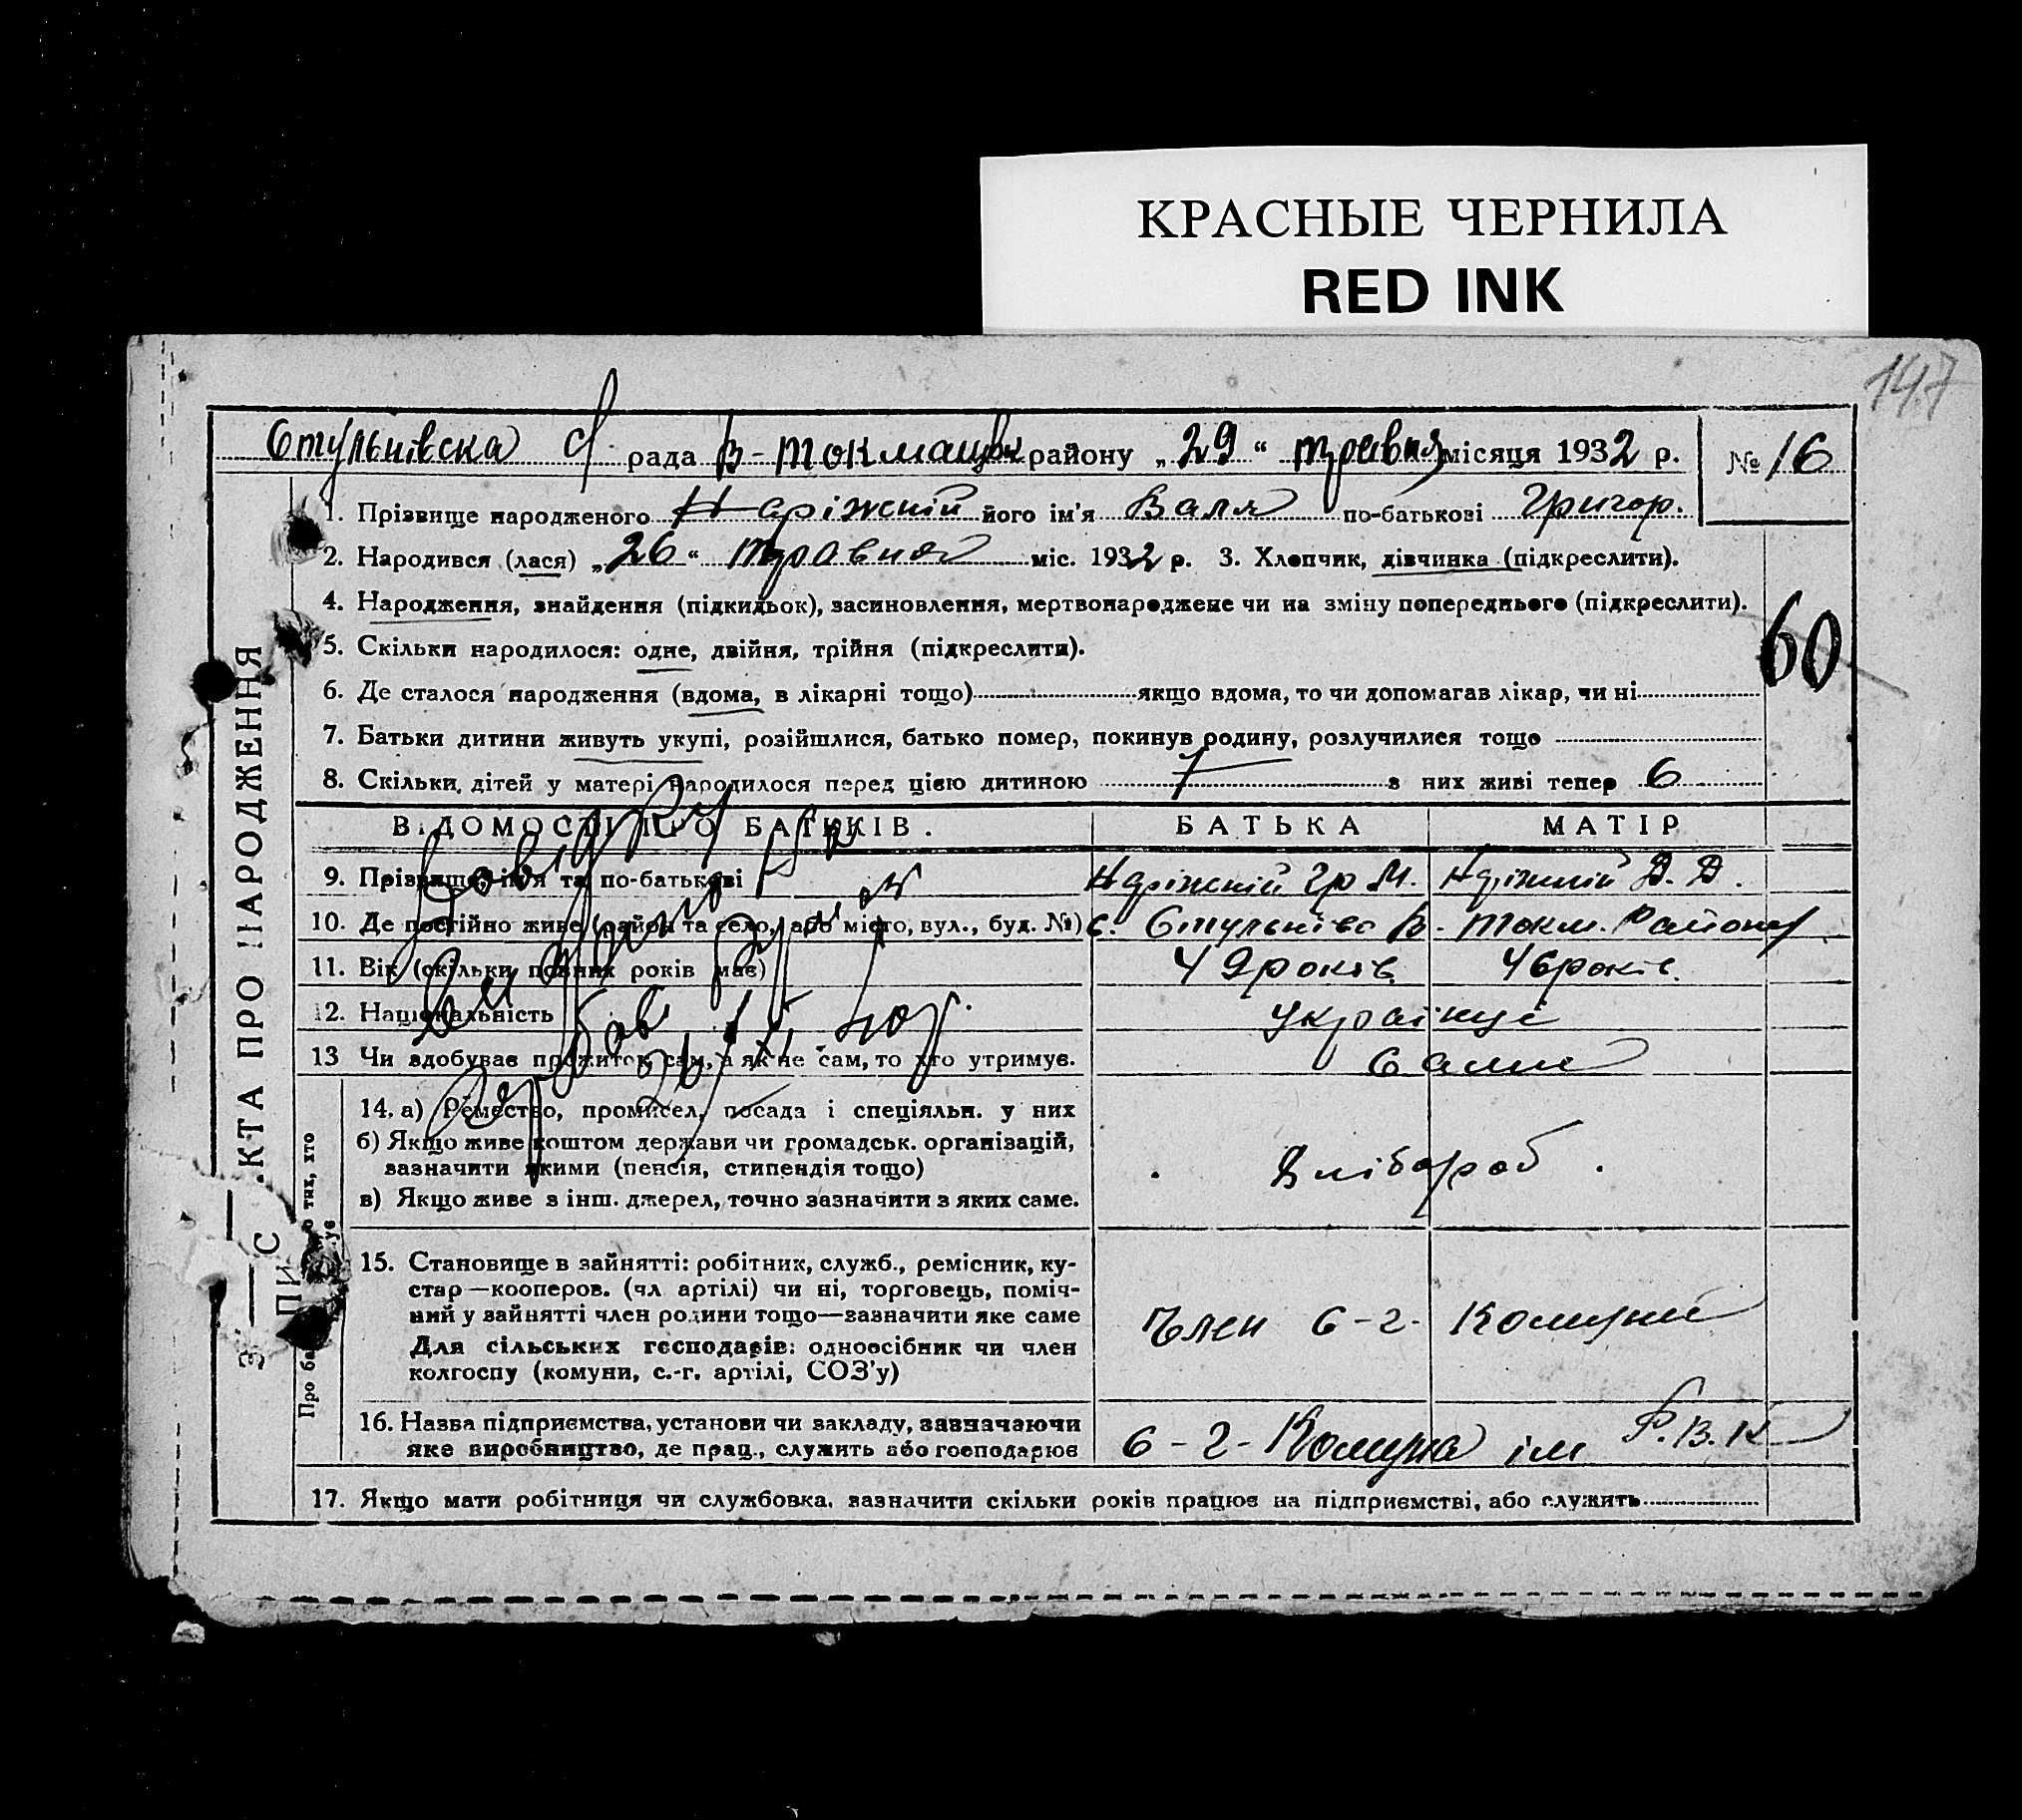 КРАСНЫЕ ЧЕРНИЛА
RED INK
147
Стульнівска с/ рада В-Токмацьк району „29“ травня місяця 1932 р. № 16
1. Прізвище народженого Наріжній його ім'я Валя по-батькові Григор.
2. Народився (лася) „26“ травня міс. 1932 р. 3. Хлопчик, дівчинка (підкреслити).
4. Народження, знайдення (підкидьок), засиновлення, мертвонароджене чи на зміну попереднього (підкреслити).
60
5. Скільки народилося: одне, двійня, трійня (підкреслити).
6. Де сталося народження (вдома, в лікарні тощо) якщо вдома, то чи допомагав лікар, чи ні
7. Батьки дитини живуть укупі, розійшлися, батько помер, покинув родину, розлучилися тощо
8. Скільки дітей у матері народилося перед цією дитиною 7 з них живі тепер 6
ВІДОМОСТІ ПРО БАТЬКІВ. БАТЬКА МАТІР
9. Прізвище, ім'я та по-батькові Наріжній Гр М. Наріжній Д. Д.
10. Де постійно живе (район та село, або місто, вул., буд. №) с. Стульніво В. Токм. Району
11. Вік (скільки повних років має) 49 років 46 років.
12. Національність Українці
13 Чи здобуває прожиток сам, а як не сам, то хто утримує. Сами
14. а) Ремество, промисел, посада і спеціяльн. у них
б) Якщо живе коштом держави чи громадськ. організацій,
зазначити якими (пенсія, стипендія тощо)
Хлібороб.
в) Якщо живе з інш. джерел, точно зазначити з яких саме.
15. Становище в зайнятті: робітник, служб., ремісник, ку-
стар—кооперов. (чл артілі) чи ні, торговець, поміч-
ний у зайнятті член родини тощо—зазначити яке саме
Член с-г. Комуни
Для сільських господарів: одноосібник чи член
колгоспу (комуни, с.-г. артілі, СОЗ'у)
16. Назва підприємства, установи чи закладу, зазначаючи
яке виробництво, де прац., служить або господарює с-г-Комуна ім Р.В.К
17. Якщо мати робітниця чи службовка, зазначити скільки років працює на підприємстві, або служить
КТА ПРО НАРОДЖЕННЯ